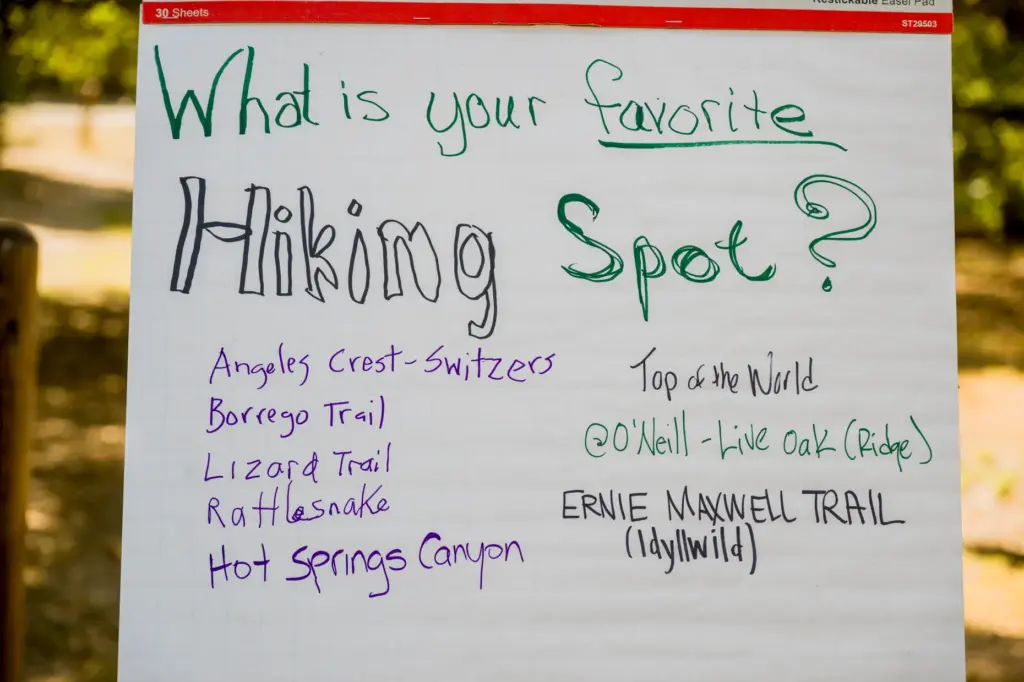 30 Sheets
Restickable Easel Pad
ST29503
What is your favorite
Hiking Spot?
Angeles Crest-Switzers
Borrego Trail
Lizard Trail
Rattlesnake
Hot Springs Canyon
Top of the World
@O'Neill - Live Oak (Ridge)
ERNIE MAXWELL TRAIL
(Idyllwild)